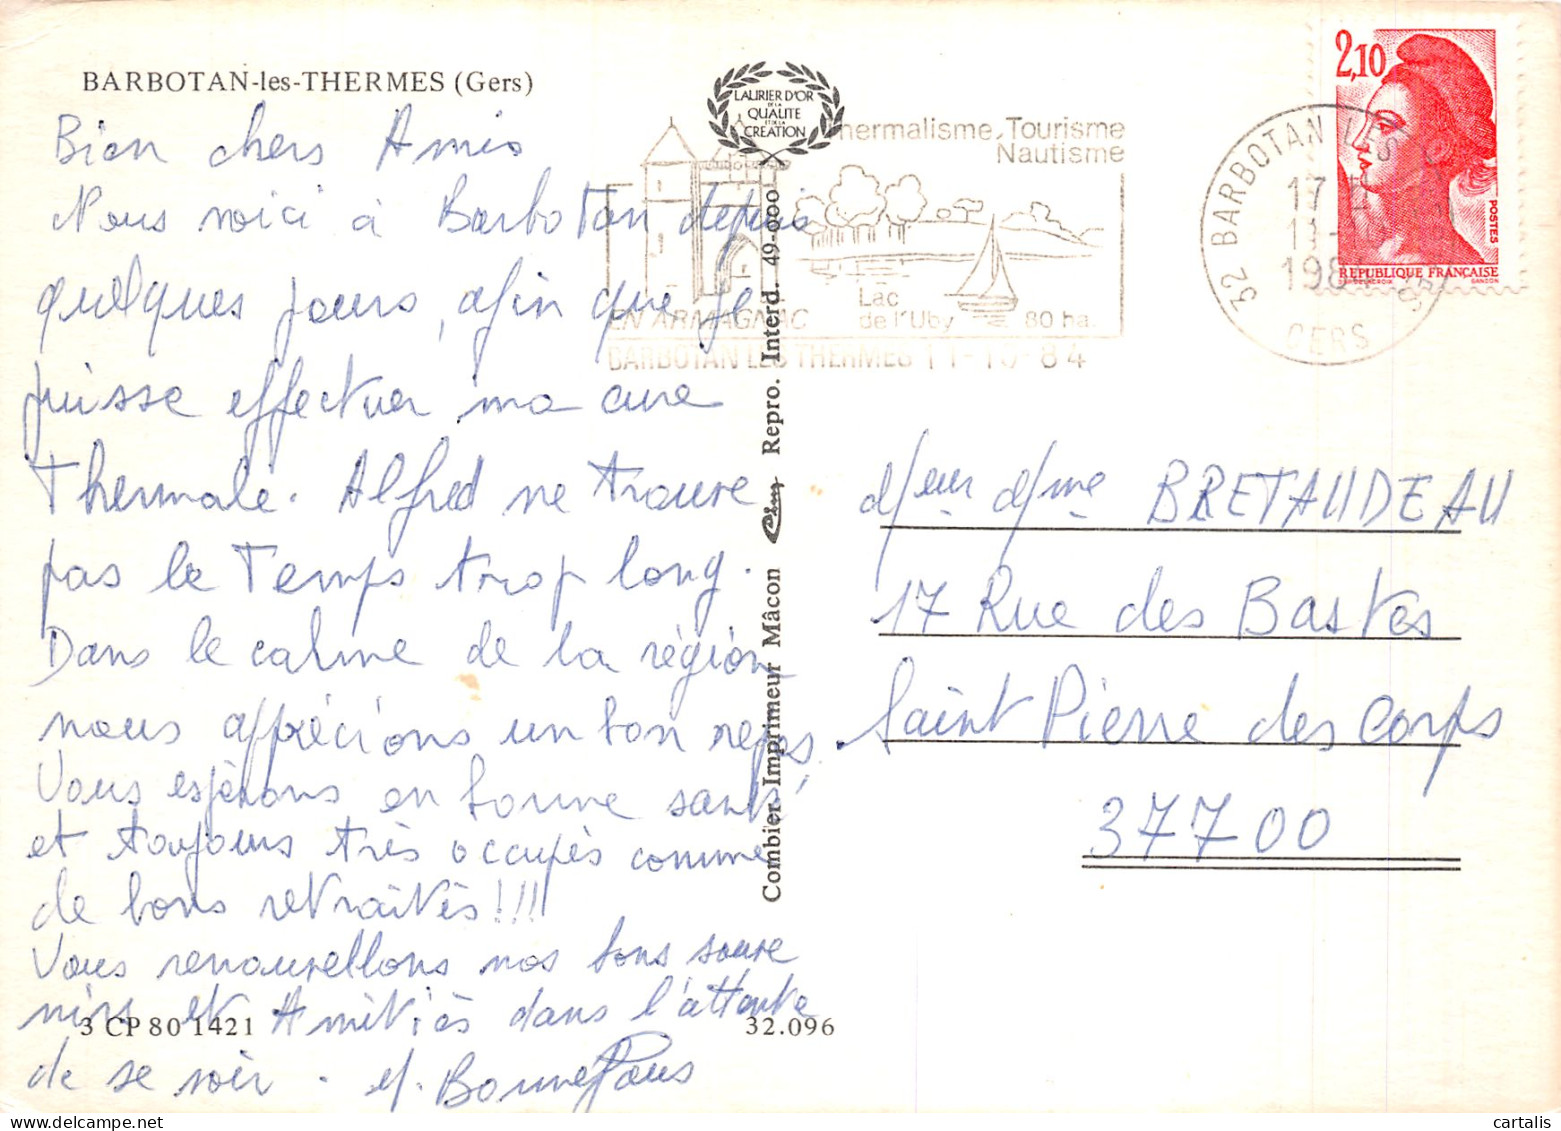 BARBOTAN-les-THERMES (Gers)
Bien chers Amis
Nous voici à Barbotan depuis
quelques jours, afin que je
puisse effectuer ma cure
Thermale. Alfred ne trouve
pas le Temps trop long.
Dans le calme de la région
nous apprécions un bon repos.
Vous espérons en bonne santé,
et toujours très occupés comme
de bons retraités!!!
Vous renouvellons nos bons souve
nirs et Amitiés dans l'attente
de se voir.
3 CP 80 1421
32.096
LAURIER D'OR
DE LA
QUALITE
ET DE LA
CREATION
Combier Imprimeur Mâcon Cim Repro. Interd. 49-000
Thermalisme, Tourisme
Nautisme
EN ARMAGNAC
Lac
de l'Uby
80 ha.
BARBOTAN LES THERMES 11-10-84
32 BARBOTAN LES
GERS
2,10
POSTES
REPUBLIQUE FRANÇAISE
GANDON
Meur Mme BRETAUDEAU
17 Rue des Bastes
Saint Pierre des Corps
37700
cartalis